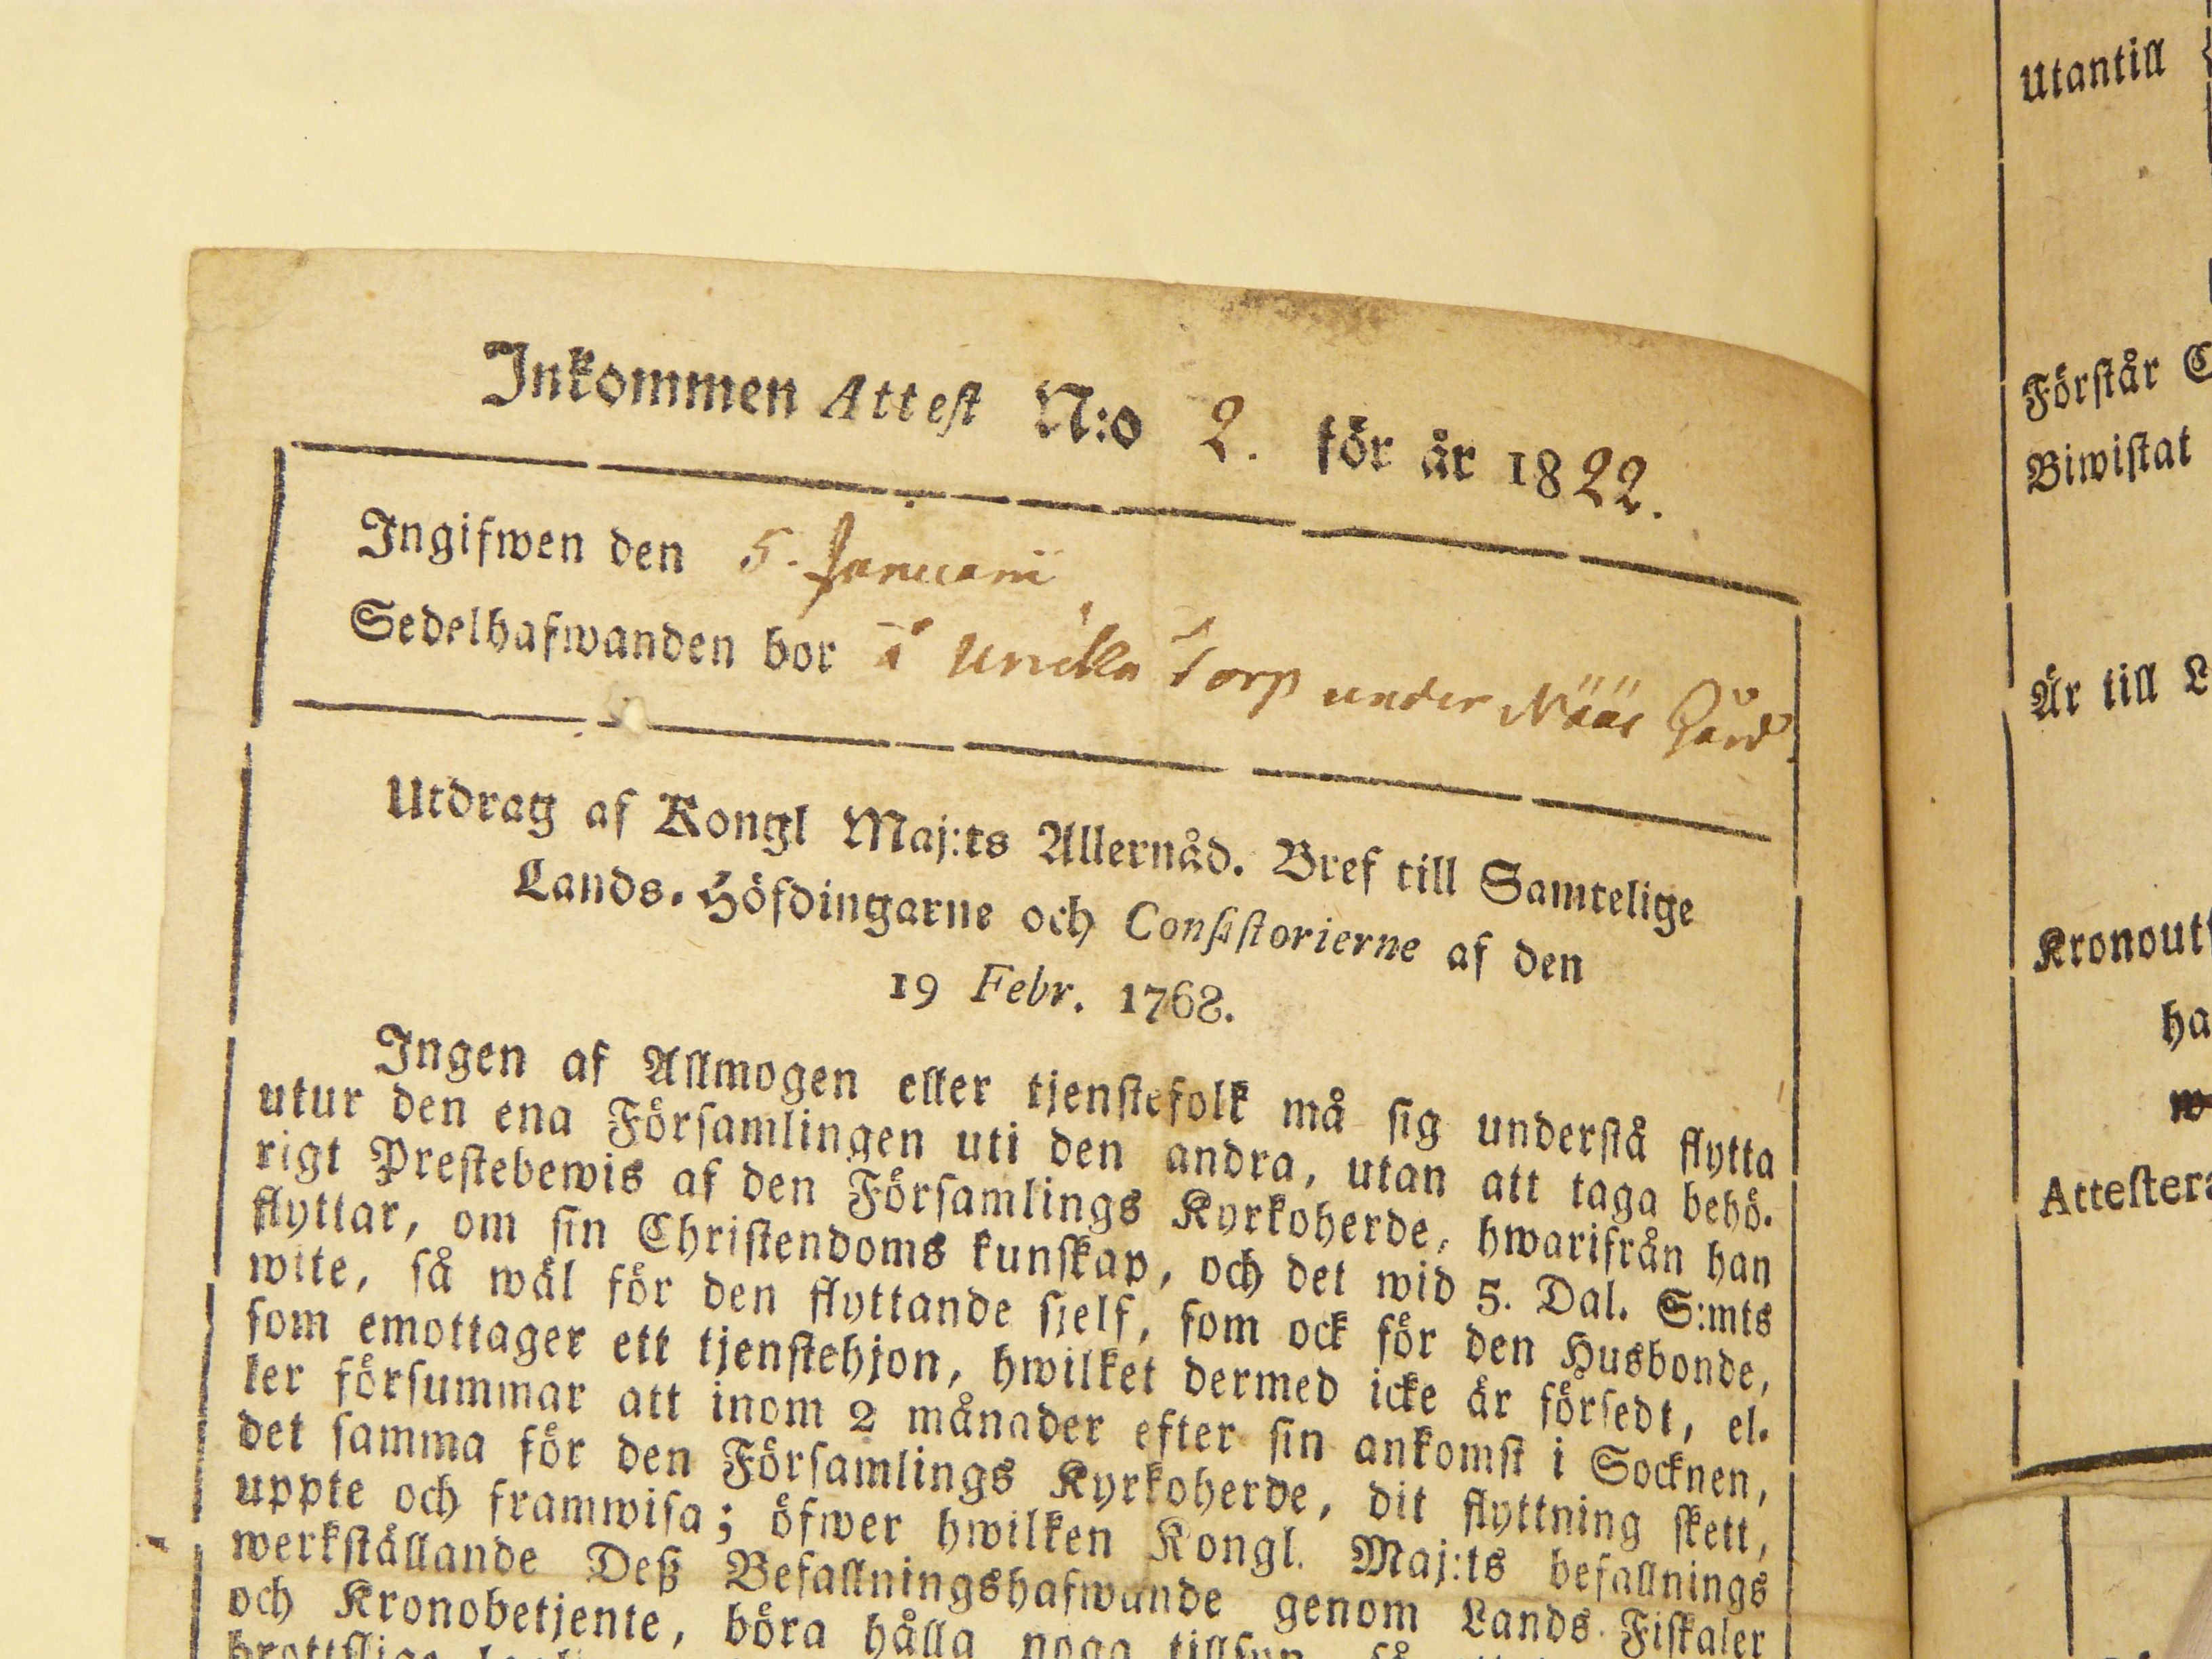 Inkommen Attest N:o 2. för år 1822.
Ingifwen den 5. Januarii
Sedelhafwanden bor å Torp under Nääs Gård.
Utdrag af Kongl Maj:ts Allernåd. Bref till Samtelige
Lands-Höfdingarne och Consistorierne af den
19 Febr. 1768.
Ingen af Allmogen eller tjenstefolk må sig understå flytta
utur den ena Församlingen uti den andra, utan att taga behö-
rigt Prestebewis af den Församlings Kyrkoherde, hwarifrån han
flyttar, om sin Christendoms kunskap, och det wid 5. Dal. S:mts
wite, så wäl för den flyttande sjelf, som ock för den Husbonde,
som emottager ett tjenstehjon, hwilket dermed icke är försedt, el-
ler försummar att inom 2 månader efter sin ankomst i Socknen,
det samma för den Församlings Kyrkoherde, dit flyttning skett,
uppte och framwisa; öfwer hwilken Kongl. Maj:ts befallnings
werkställande Deß Befallningshafwande genom Lands-Fiskaler
och Kronobetjente, böra hålla noga tillsyn, så
Utantill
Förstår C
Biwistat
Är till L
Kronout
ha
w
Attester